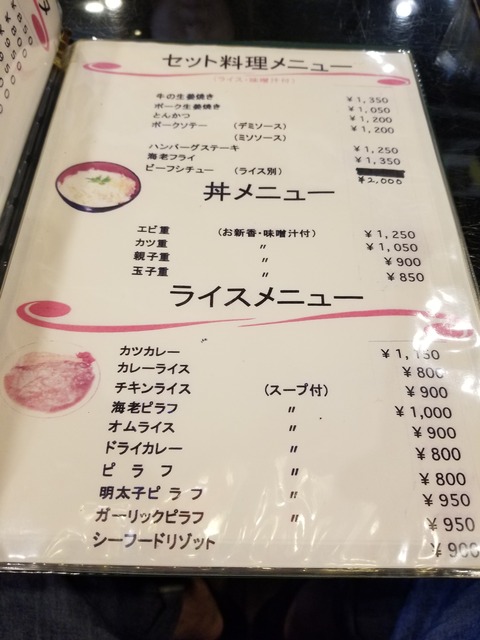 セット料理メニュー
(ライス・味噌汁付)
牛の生姜焼き ¥1,350
ポーク生姜焼き ¥1,050
とんかつ ¥1,200
ポークソテー (デミソース) ¥1,200
(ミソソース)
ハンバーグステーキ ¥1,250
海老フライ ¥1,350
ビーフシチュー (ライス別) ¥2,000
丼メニュー
エビ重 (お新香・味噌汁付) ¥1,250
カツ重 〃 ¥1,050
親子重 〃 ¥900
玉子重 〃 ¥850
ライスメニュー
カツカレー ¥1,150
カレーライス ¥800
チキンライス (スープ付) ¥900
海老ピラフ 〃 ¥1,000
オムライス 〃 ¥900
ドライカレー 〃 ¥800
ピラフ 〃 ¥800
明太子ピラフ 〃 ¥950
ガーリックピラフ 〃 ¥950
シーフードリゾット ¥900